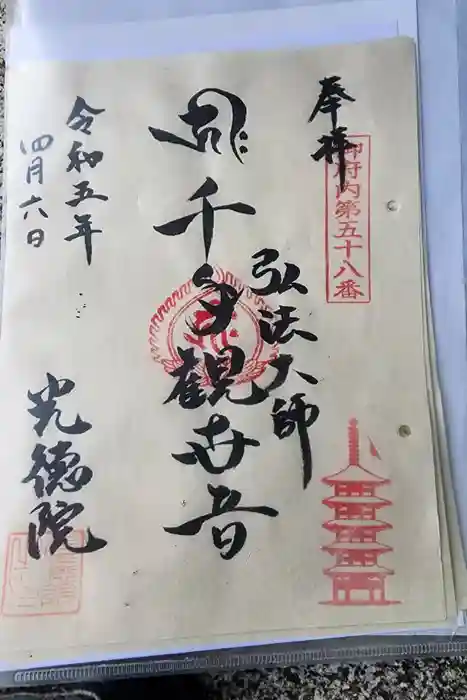 奉拝
御府内第五十八番
弘法大師
千手観世音
令和五年
四月六日
光徳院